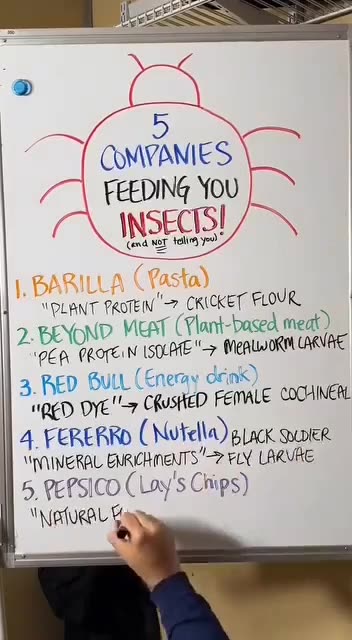 5
COMPANIES
FEEDING YOU
INSECTS!
(and NOT telling you)
1. BARILLA (Pasta)
"PLANT PROTEIN" → CRICKET FLOUR
2. BEYOND MEAT (Plant-based meat)
"PEA PROTEIN ISOLATE" → MEALWORM LARVAE
3. RED BULL (Energy drink)
"RED DYE" → CRUSHED FEMALE COCHINEAL
4. FERERRO (Nutella) BLACK SOLDIER
"MINERAL ENRICHMENTS" → FLY LARVAE
5. PEPSICO (Lay's Chips)
"NATURAL F